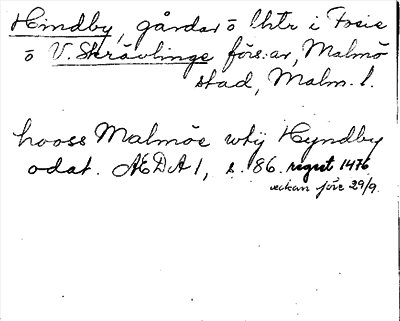 Hindby, gårdar o lhtr i Fosie
o V. Skrävlinge förs:ar, Malmö
stad, Malm. l.
hooss Malmöe wtij Hyndby
odat. ÆDA 1, s. 86. regest 1476
veckan före 29/9.